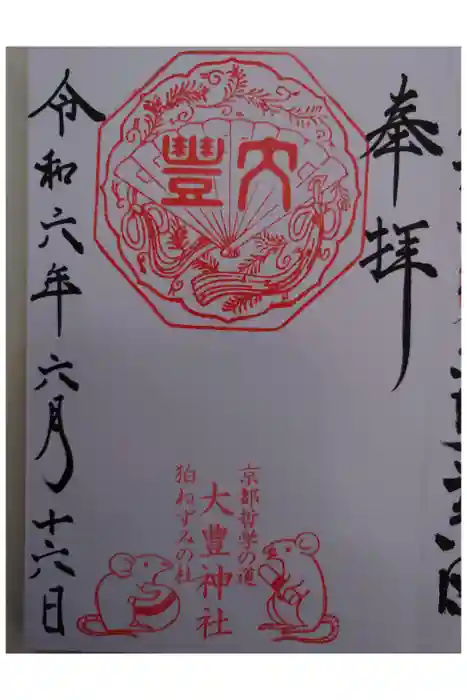 奉拝
大豐
京都哲学の道
大豊神社
狛ねずみの社
令和六年六月十六日